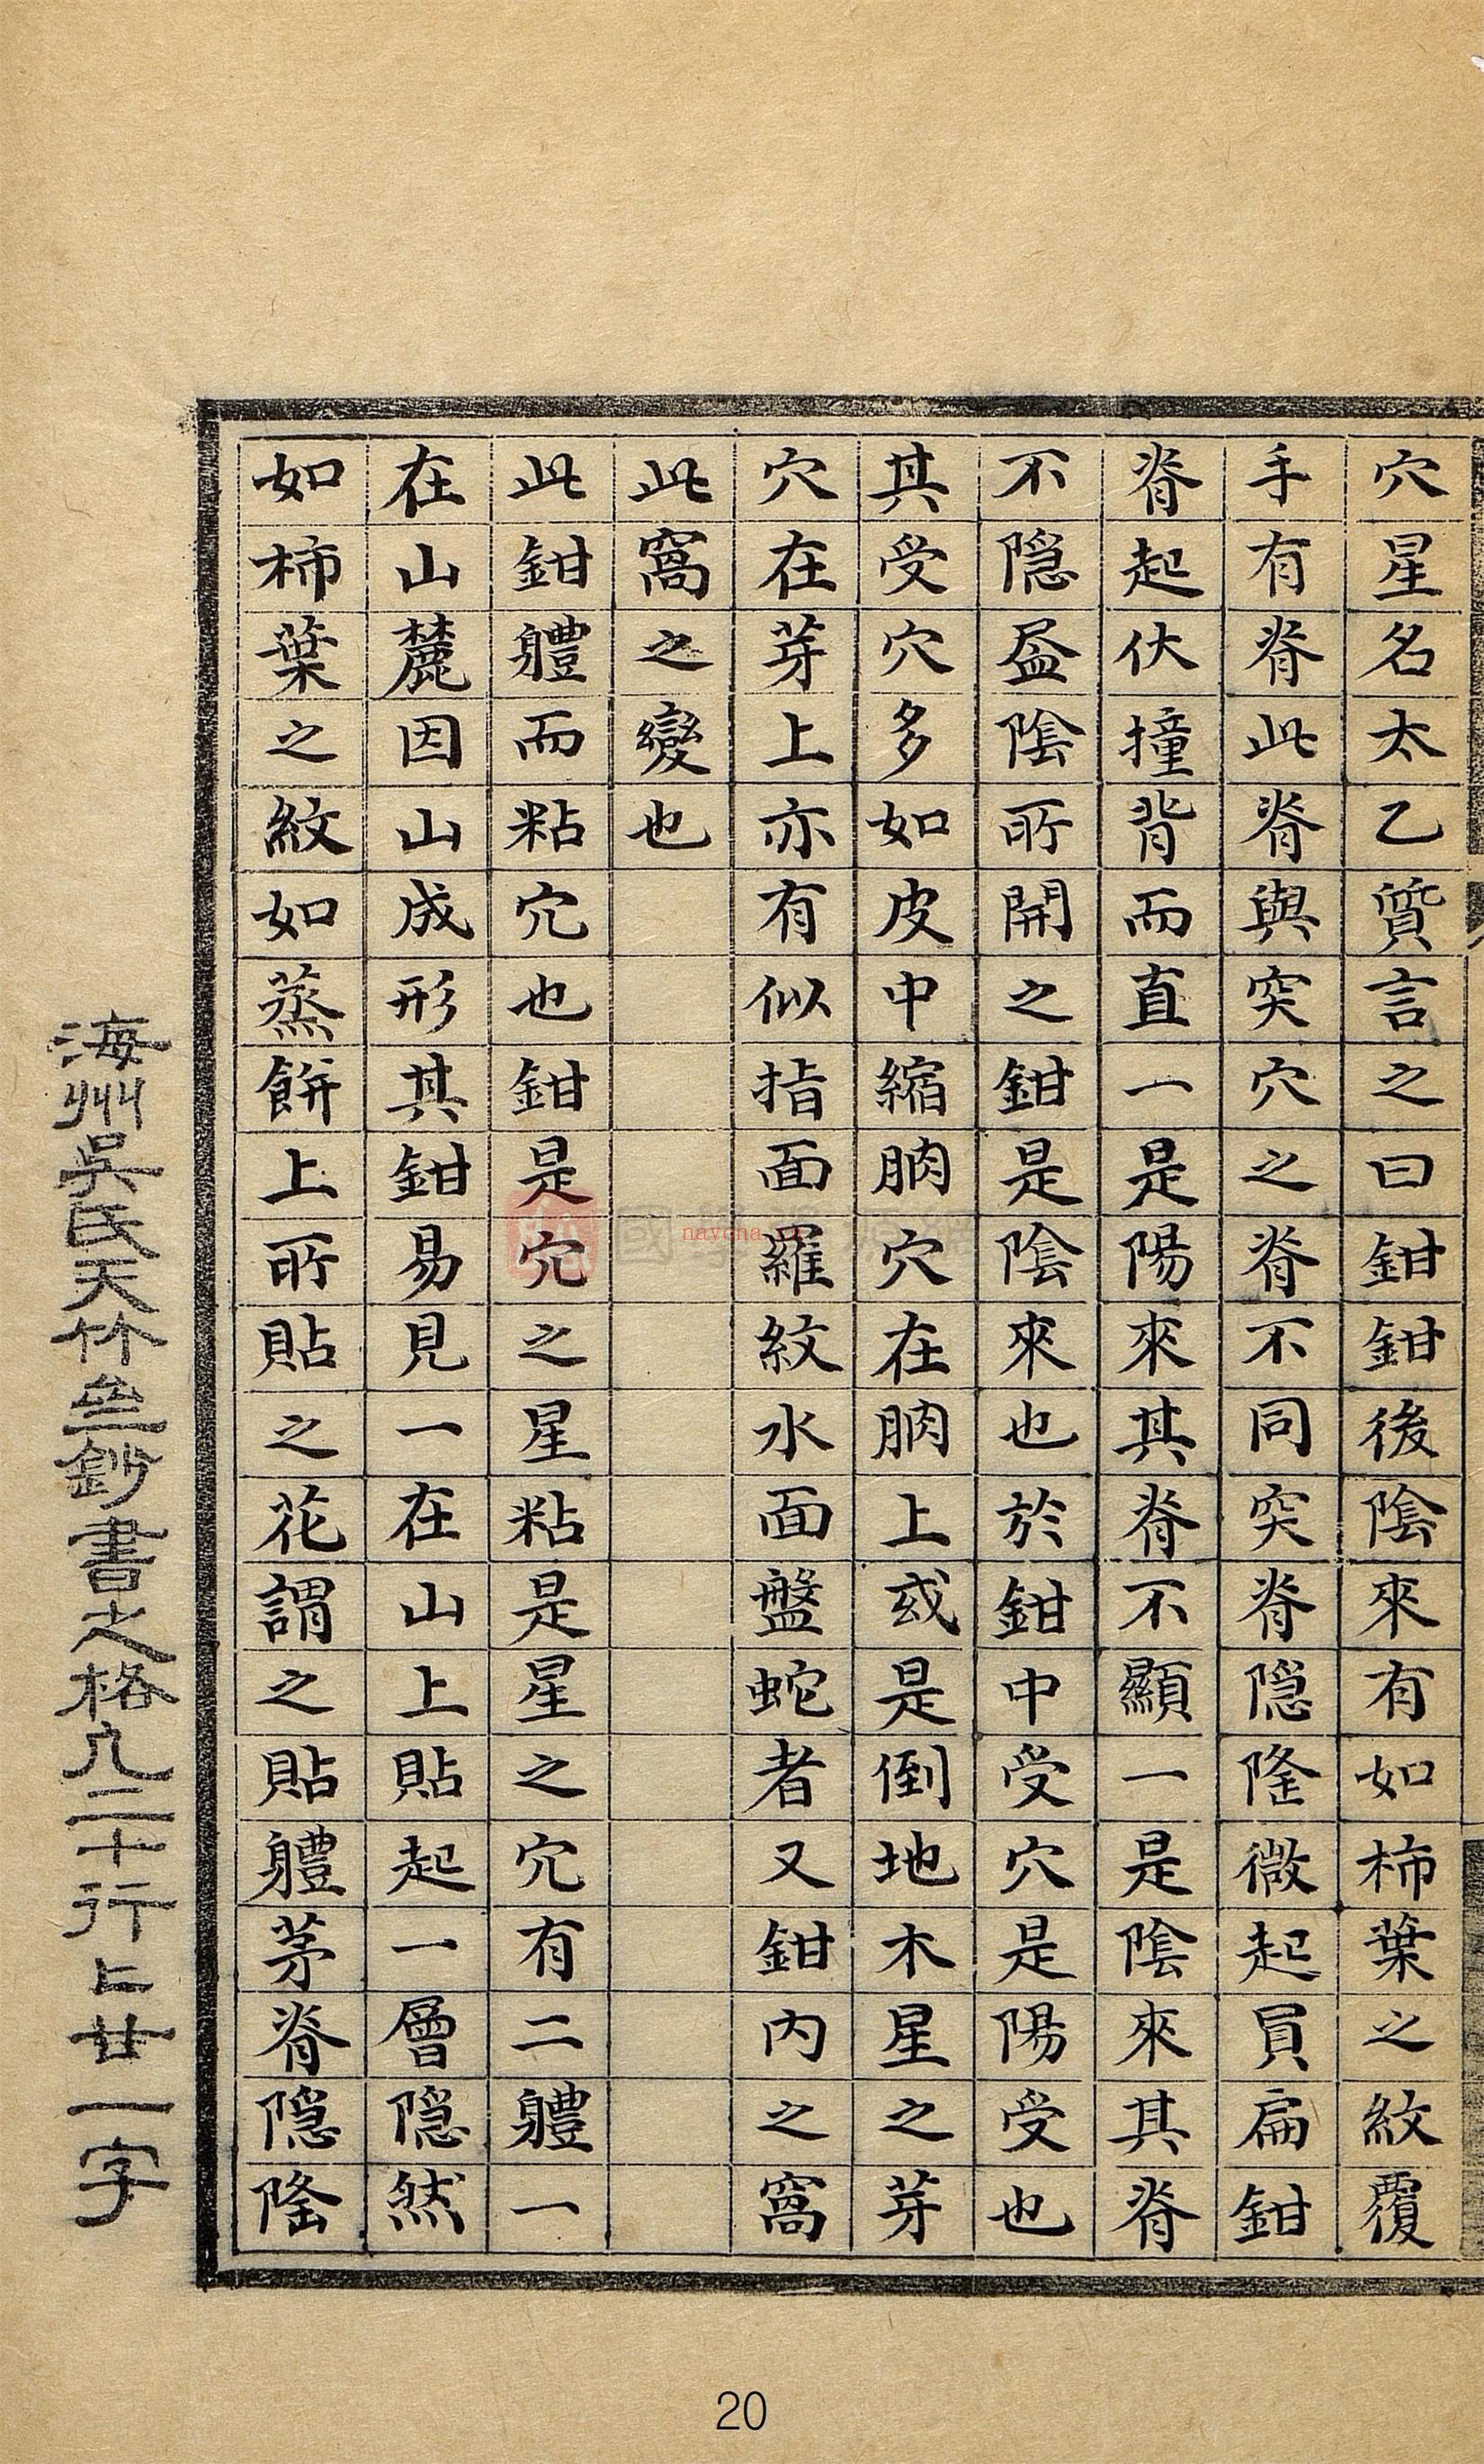 穴星名太乙質言之曰鉗鉗後陰來有如柿葉之紋覆
手有脊此脊與突穴之脊不同突脊隠隆微起員扁鉗
脊起伏撞背而直一是陽來其脊不顯一是陰來其脊
不隠盈陰所開之鉗是陰來也於鉗中受穴是陽受也
其受穴多如皮中縮朒穴在朒上或是倒地木星之芽
穴在芽上亦有似指面羅紋水面盤蛇者又鉗内之窩
此窩之變也
此鉗軆而粘穴也鉗是穴之星粘是星之穴有二軆一
在山麓因山成形其鉗易見一在山上貼起一層隠然
如柿葉之紋如蒸餅上所貼之花謂之貼軆茅脊隠隆
海州吳氏天竹盦鈔書之格凡二十行上廿一字
國學
nayona
20